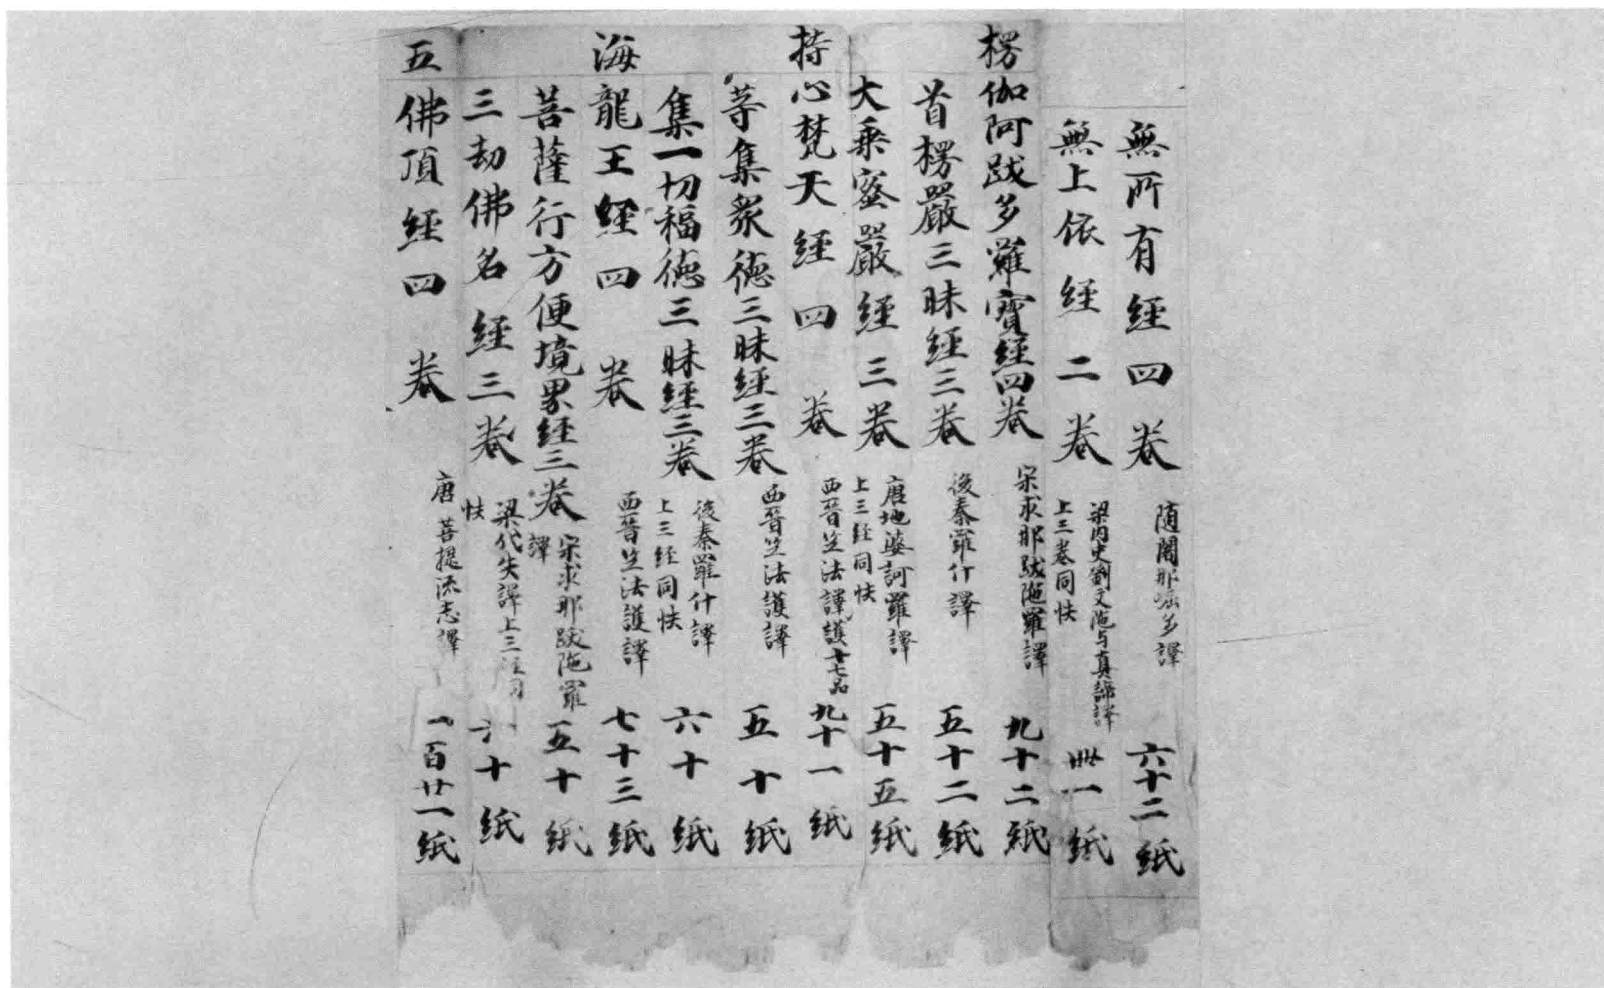 無所有經四卷 随闍那崛多譯 六十二紙
無上依經二卷 梁内史劉文陁与真諦譯 上三卷同帙 卌一紙
楞伽阿跋多羅寶經四卷 宋求那跋陁羅譯 九十二紙
首楞嚴三昧經三卷 後秦羅什譯 五十二紙
大乘密嚴經三卷 唐地婆訶羅譯 上三經同帙 五十五紙
持心梵天經四卷 西晉竺法譯護十七品 九十一紙
等集衆德三昧經三卷 西晉竺法護譯 五十紙
集一切福德三昧經三卷 後秦羅什譯 上三經同帙 六十紙
海龍王經四卷 西晉竺法護譯 七十三紙
菩薩行方便境界經三卷 宋求那跋陁羅譯 五十紙
三劫佛名經三卷 梁代失譯上三經同帙 六十紙
五佛頂經四卷 唐菩提流志譯 一百廿一紙